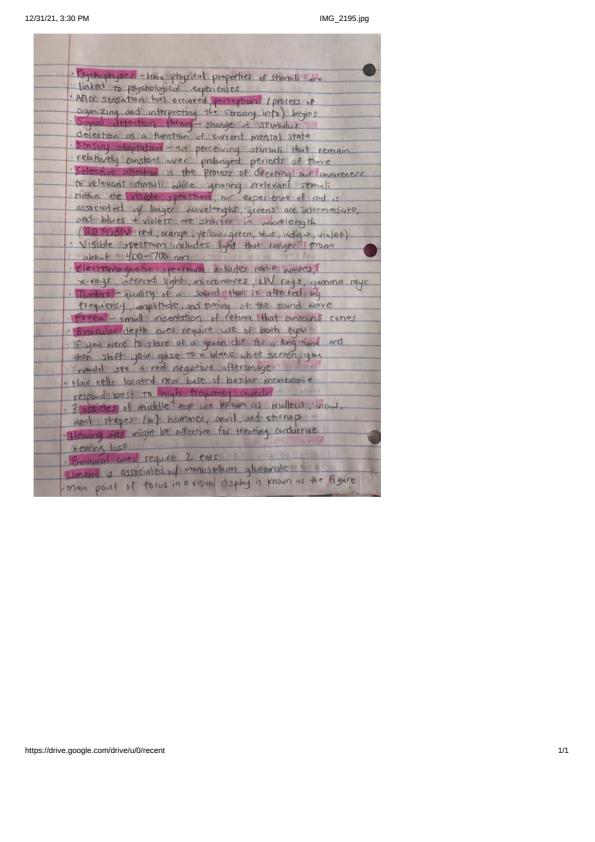 12/31/21, 3:30 PM IMG_2195.jpg
• Psychophysics - how physical properties of stimuli are
linked to psychological experiences
• After sensation has occurred, perception (process of
organizing and interpreting the sensory info) begins
• Signal detection theory - change + stimulus
detection as a function of current mental state
• Sensory adaptation - not perceiving stimuli that remain
relatively constant over prolonged periods of time
• Selective attention is the process of directing our awareness
to relevant stimuli while ignoring irrelevant stimuli
• Within the visible spectrum, our experience of red is
associated w/ longer wavelengths, greens are intermediate,
and blues + violets are shorter in wavelength
(ROYGBIV: red, orange, yellow, green, blue, indigo, violet)
• Visible spectrum includes light that ranges from
about 400-700 nm
• electromagnetic spectrum includes radio waves,
x-rays infrared light, microwaves, UV rays, gamma rays
• Timbre - quality of a sound that is affected by
frequency, amplitude, and timing of the sound wave
• Fovea - small indentation of retina that contains cones
• Binocular depth cues require use of both eyes
• If you were to stare at a green dot for a long time and
then shift your gaze to a blank white screen, you
would see a red negative afterimage
• Hair cells located near base of basilar membrane
respond best to high-frequency sounds
• 3 ossicles of middle ear are known as malleus, incus,
and stapes (or) hammer, anvil, and stirrup
• Hearing aids might be effective for treating conductive
hearing loss
• Binaural cues require 2 ears
Umami is associated w/ monosodium glutamate
• main point of focus in a visual display is known as the figure
https://drive.google.com/drive/u/0/recent 1/1